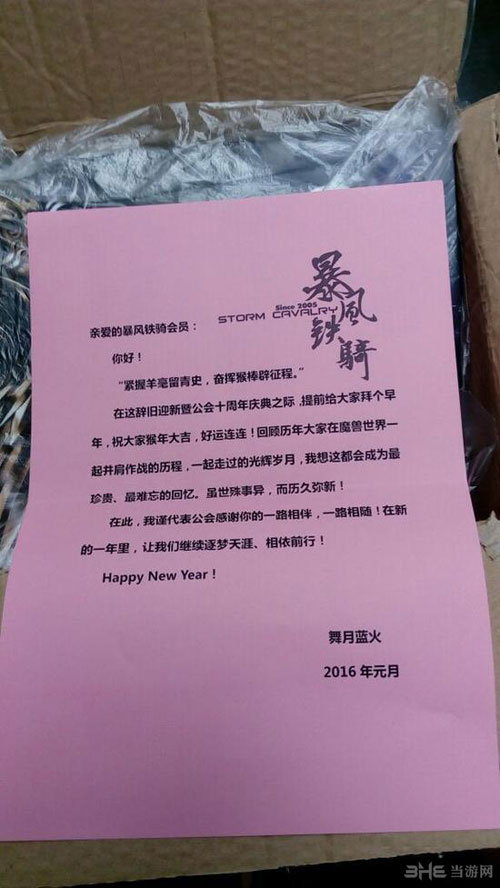 暴风铁骑
Since 2005
STORM CAVALRY
亲爱的暴风铁骑会员：
你好！
“紧握羊毫留青史，奋挥猴棒辟征程。”
在这辞旧迎新暨公会十周年庆典之际，提前给大家拜个早
年，祝大家猴年大吉，好运连连！回顾历年大家在魔兽世界一
起并肩作战的历程，一起走过的光辉岁月，我想这都会成为最
珍贵、最难忘的回忆。虽世殊事异，而历久弥新！
在此，我谨代表公会感谢你的一路相伴，一路相随！在新
的一年里，让我们继续逐梦天涯、相依前行！
Happy New Year！
舞月蓝火
2016 年元月
3HE 当游网